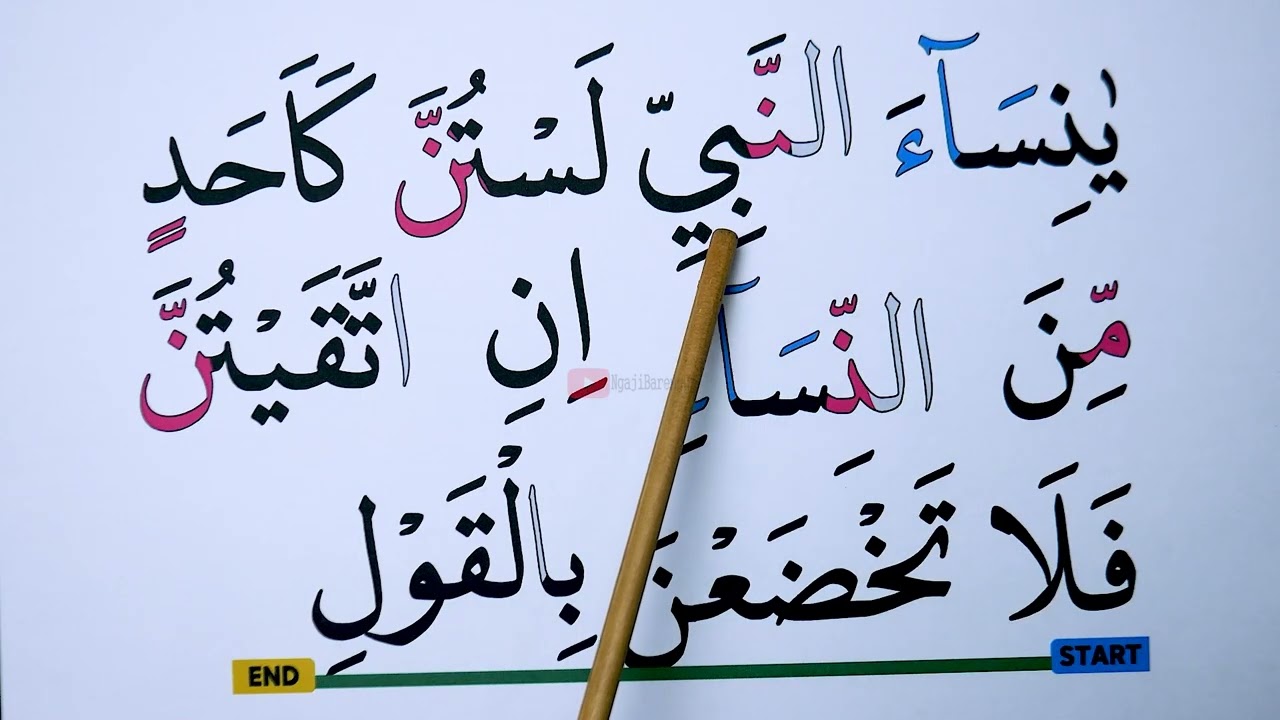 يٰنِسَآءَ النَّبِيِّ لَسْتُنَّ كَاَحَدٍ
مِّنَ النِّسَآءِ اِنِ اتَّقَيْتُنَّ
فَلَا تَخْضَعْنَ بِالْقَوْلِ
END START